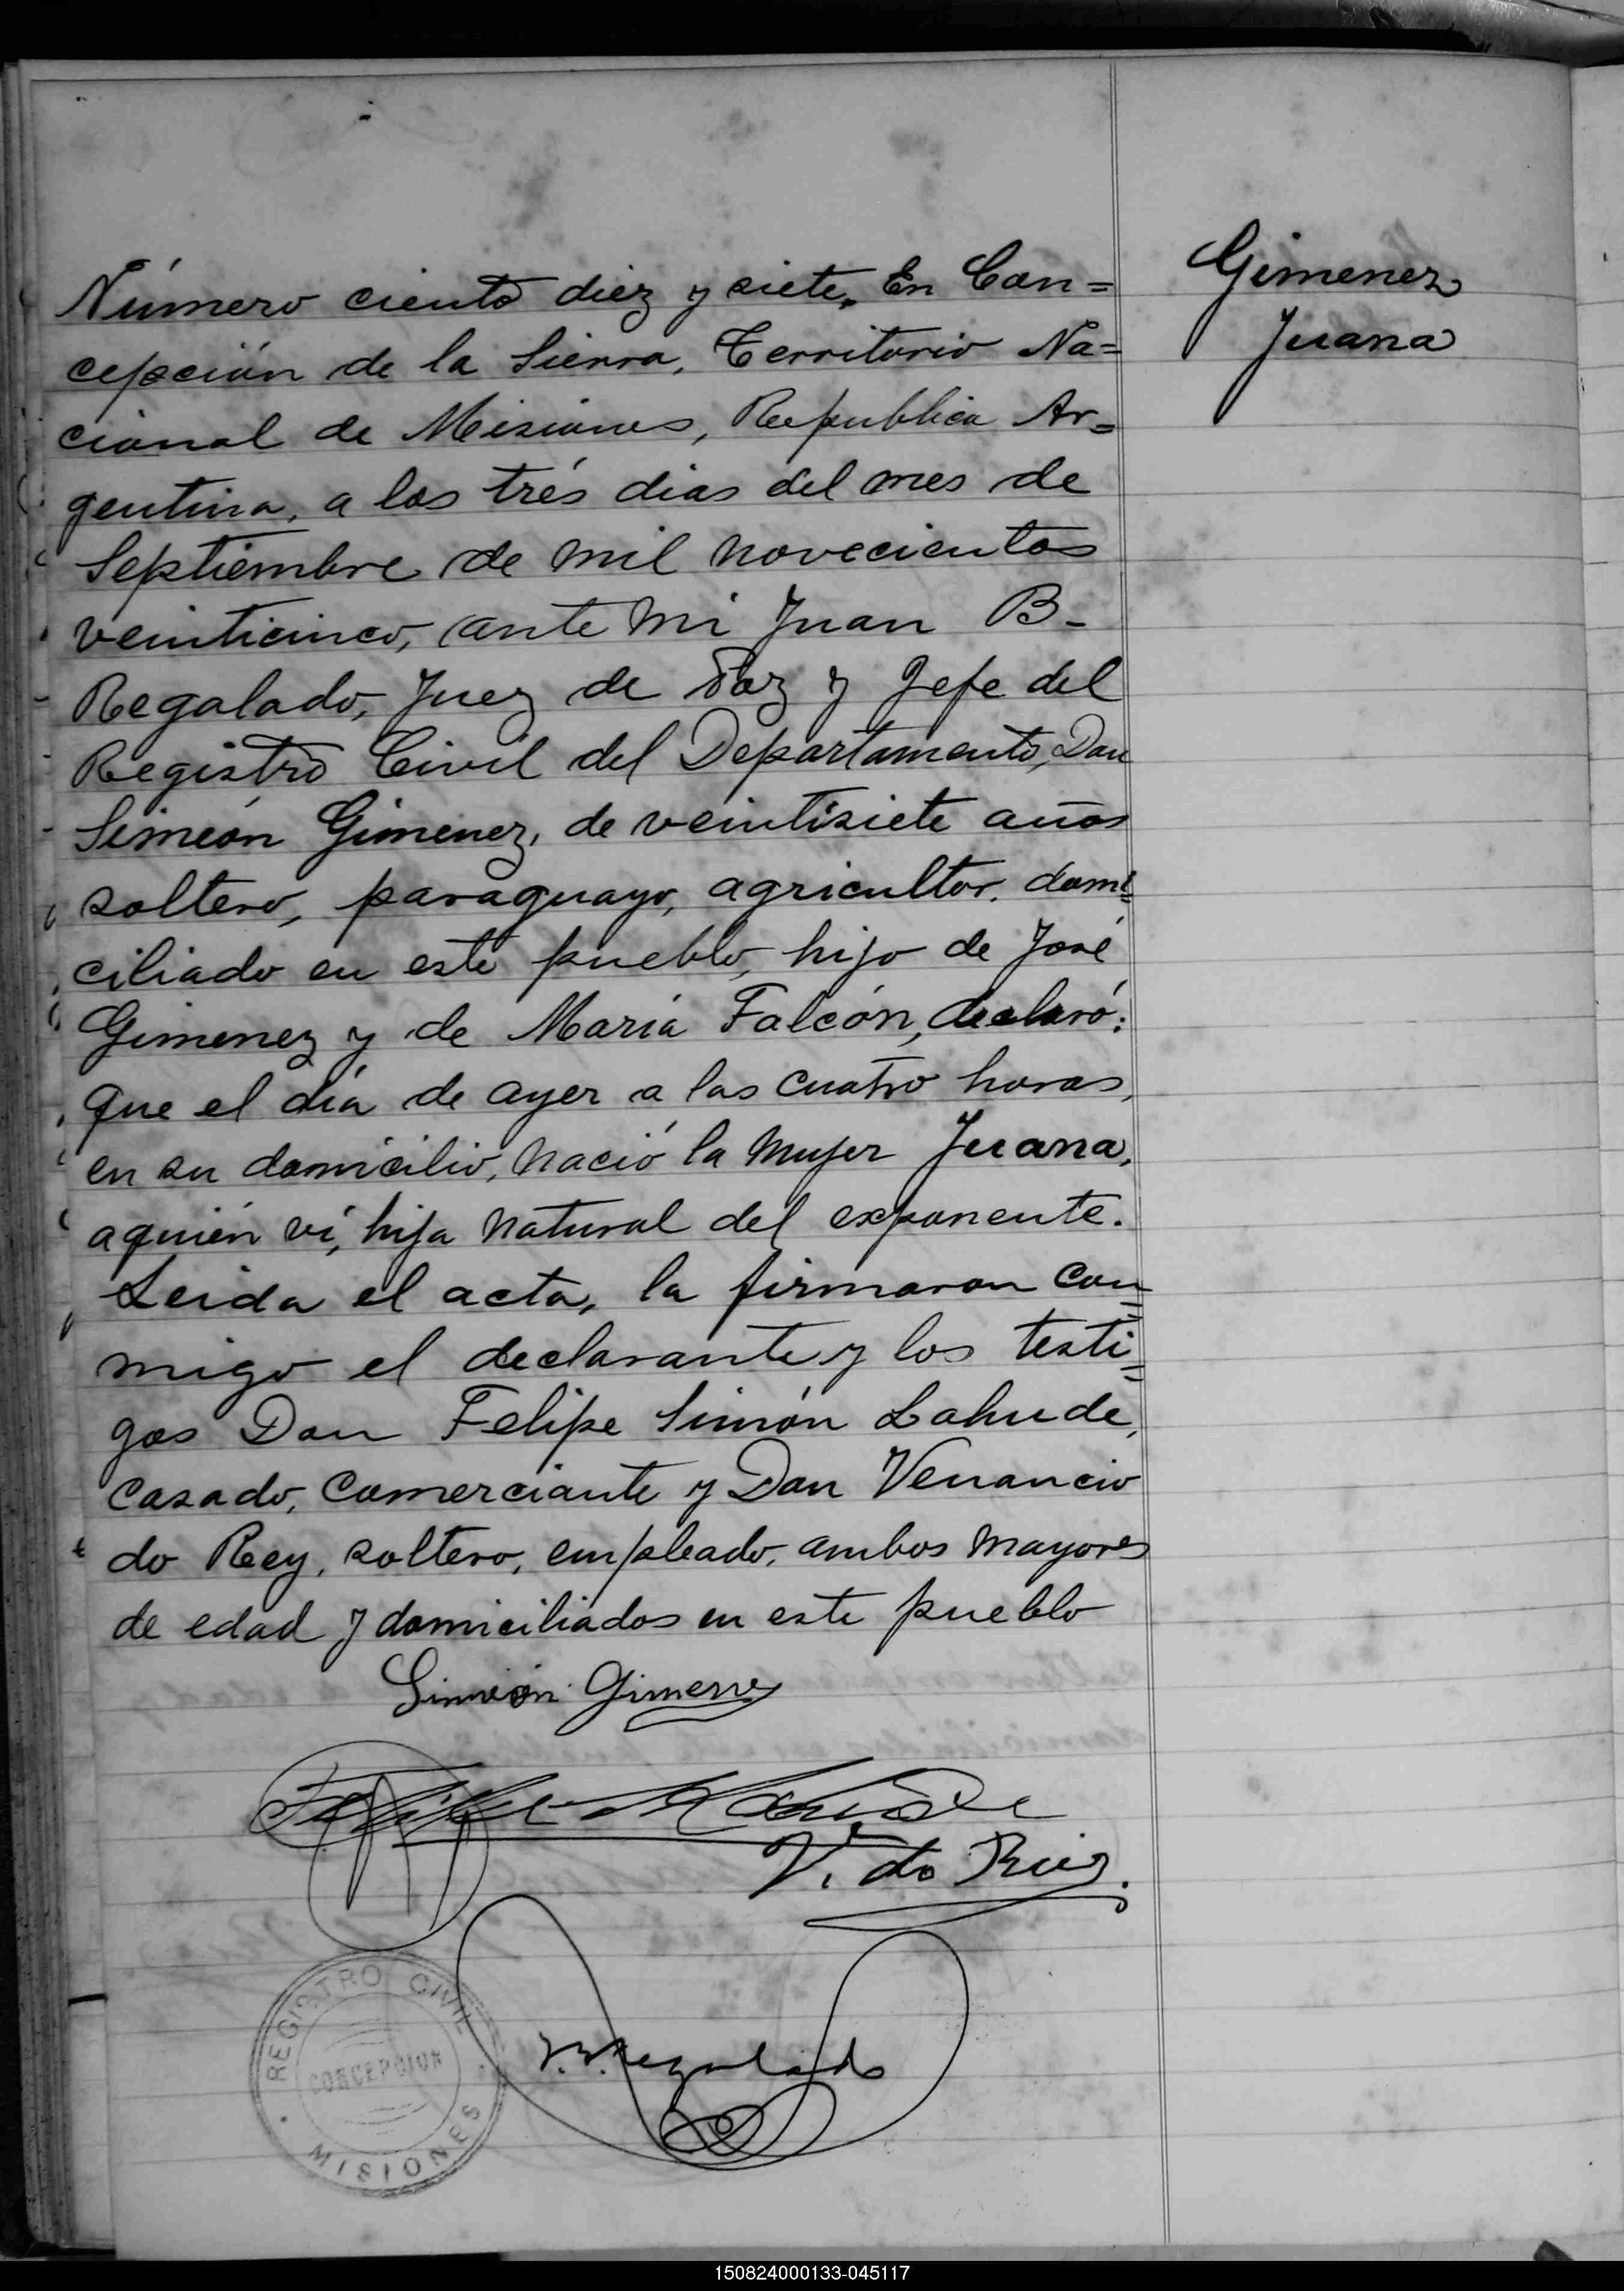 Número ciento diez y siete. En Con=
cepción de la Sierra, Territorio Na=
cional de Misiones, Republica Ar=
gentina, a los trés dias del mes de
Septiembre de mil novecientos
veinticinco, ante mi Juan B.
Regalado, Juez de Paz y Jefe del
Registro Civil del Departamento, Don
Simeón Gimenez, de veintisiete años
soltero, paraguayo, agricultor, domi=
ciliado en este pueblo, hijo de José
Gimenez y de María Falcón, declaró:
que el día de ayer a las cuatro horas,
en su domicilio, nació la mujer Juana,
aquién ví, hija natural del exponente.
Leida el acta, la firmaron con=
migo el declarante y los testi=
gos Don Felipe Simón Lahude,
casado, comerciante y Don Venancio
do Rey, soltero, empleado, ambos mayores
de edad y domiciliados en este pueblo
Gimenez
Juana
Simeón Gimenez
Felipe S Lahude
V. do Rey.
J.B. Regalado
REGISTRO CIVIL
CONCEPCION
MISIONES
150824000133-045117